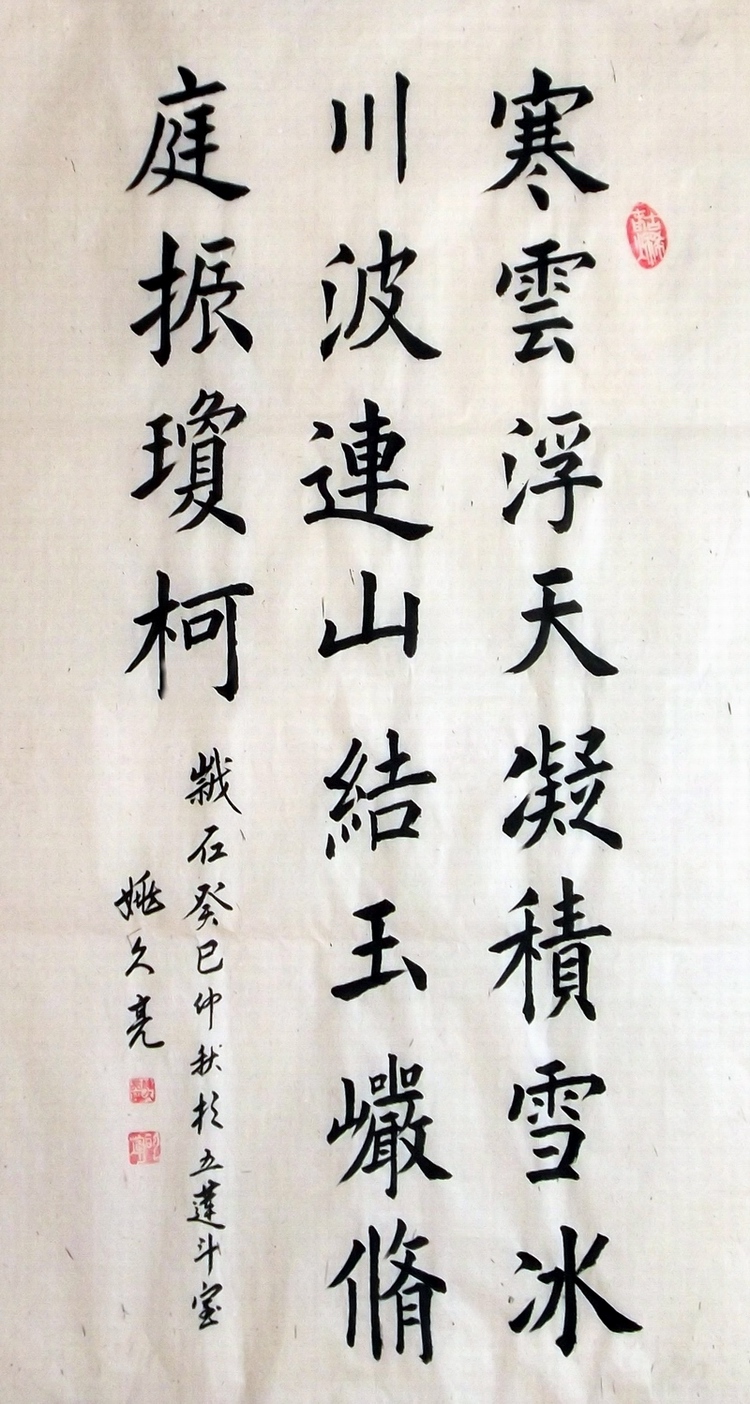 寒雲浮天凝積雪冰
川波連山結玉巗脩
庭振瓊柯
石癸巳仲秋於五蓮斗室
姚久亮